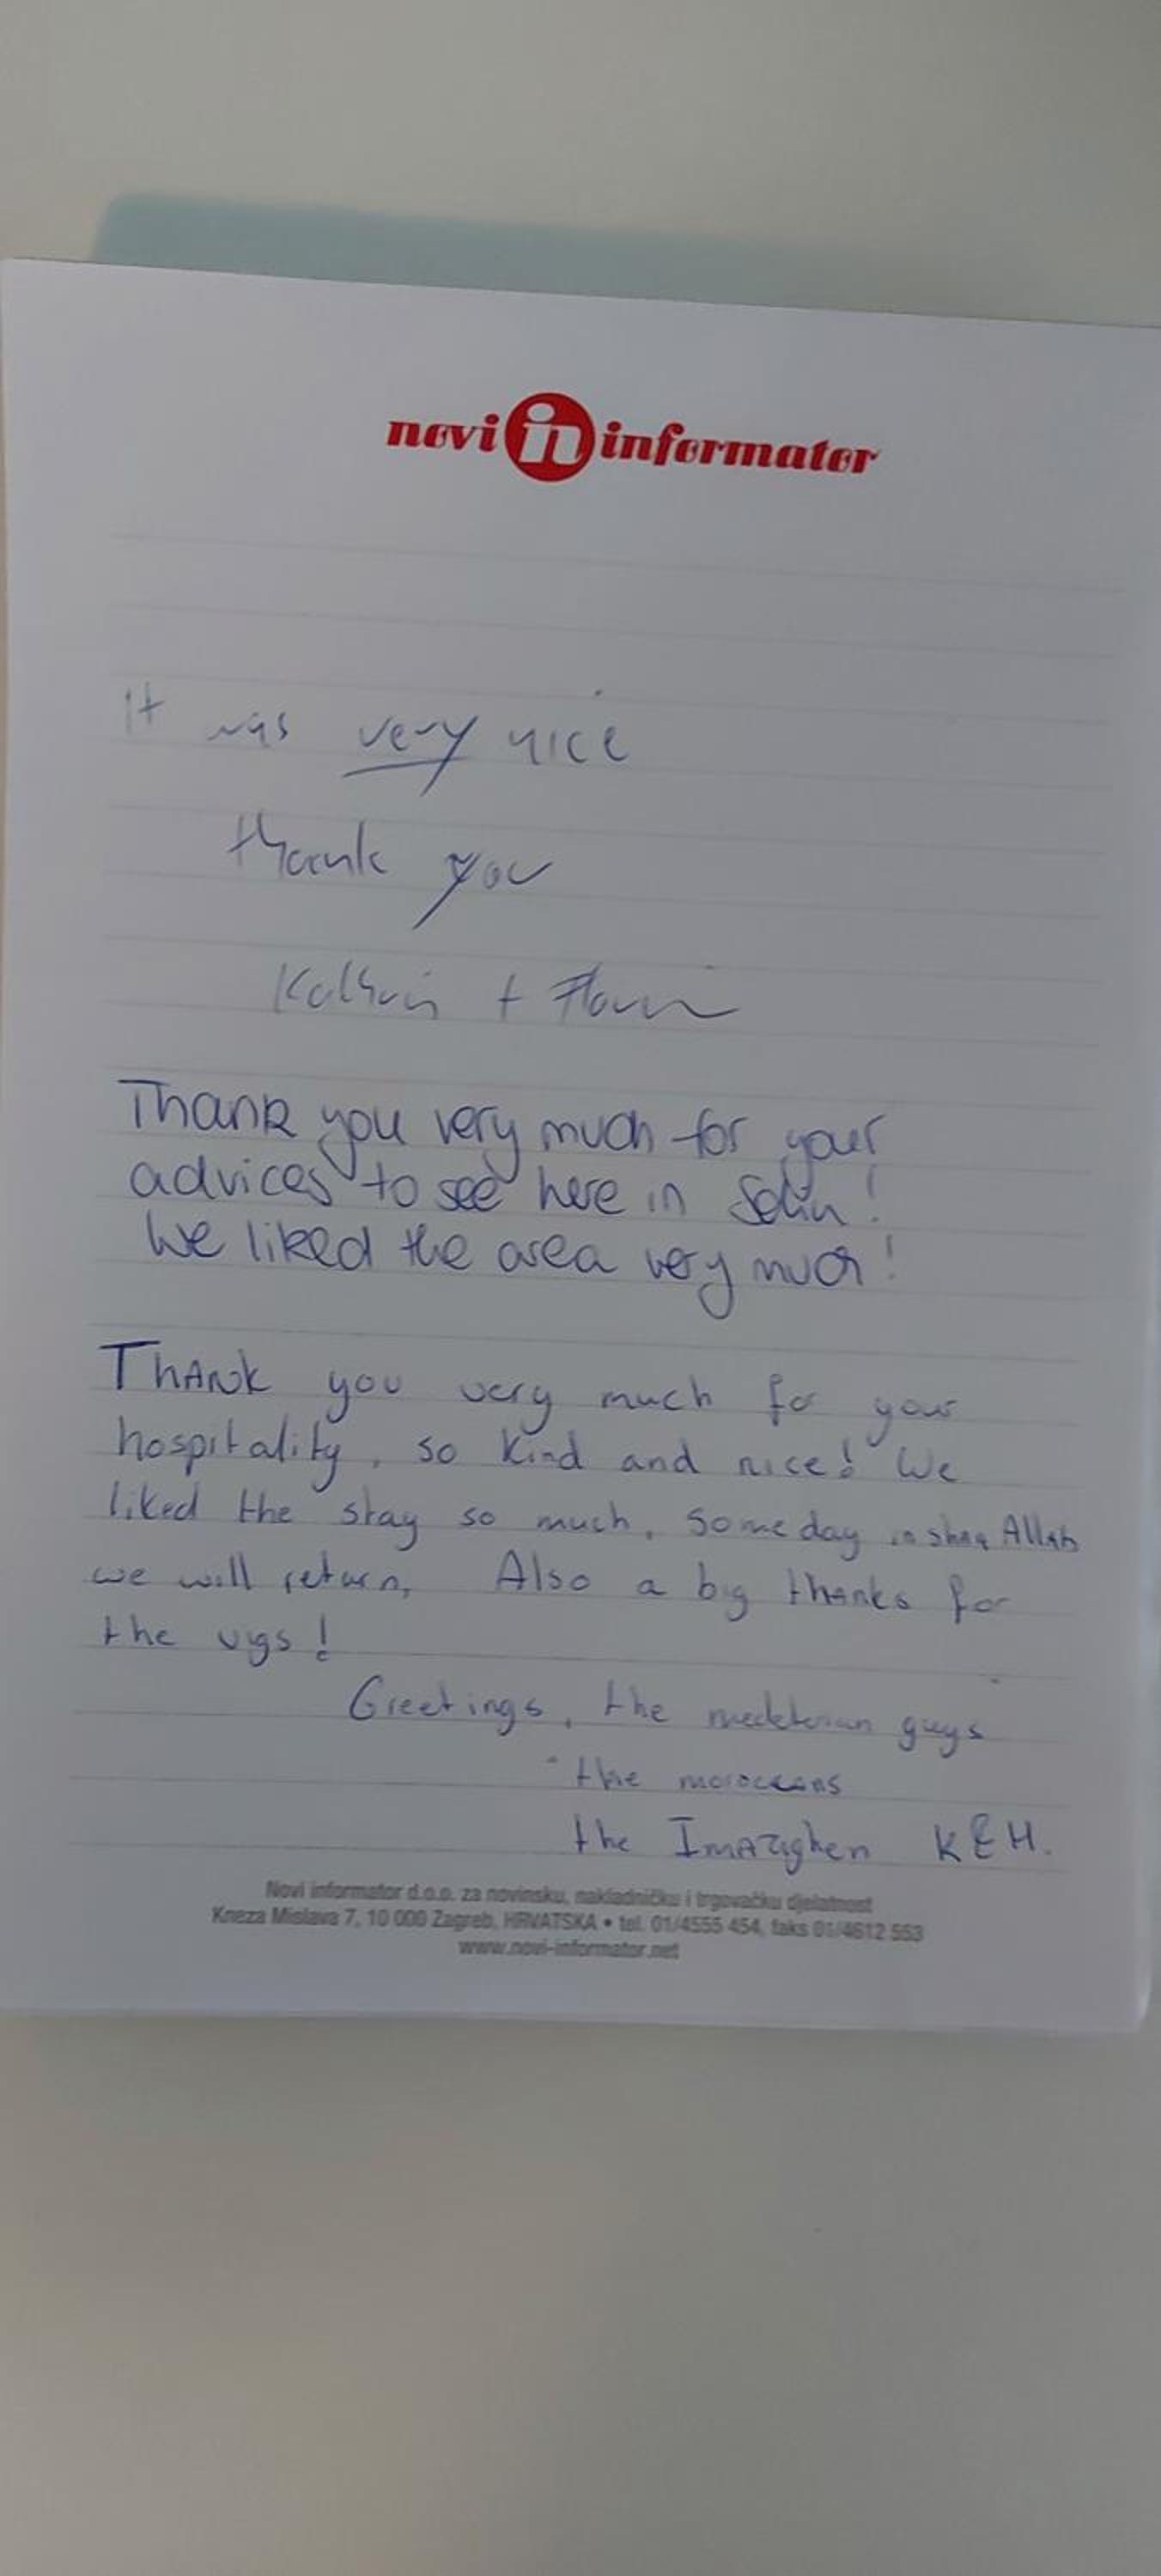 novi in informator
It was very nice
thank you
Kathrin + Florian
Thank you very much for your
advices to see here in Solin!
We liked the area very much!
Thank you very much for your
hospitality, so kind and nice! We
liked the stay so much, someday in shaa Allah
we will return, Also a big thanks for
the vygs!
Greetings, the medeterian guys
the moroccans
the Imazighen K&H.
Novi informator d.o.o. za novinsku, nakladničku i trgovačku djelatnost
Kneza Mislava 7, 10 000 Zagreb, HRVATSKA • tel. 01/4555 454, faks 01/4612 553
www.novi-informator.net